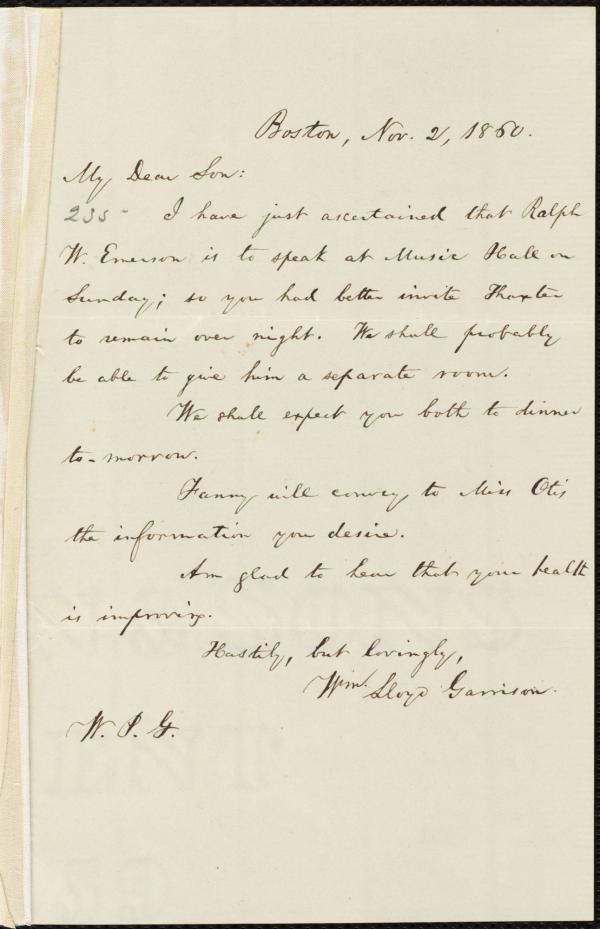 Boston, Nov. 2, 1860.
My Dear Son:
235 - I have just ascertained that Ralph
W. Emerson is to speak at Music Hall on
Sunday; so you had better invite Thaxter
to remain over night. We shall probably
be able to give him a separate room.
We shall expect you both to dinner
to-morrow.
Fanny will convey to Miss Otis
the information you desire.
Am glad to hear that your health
is improving.
Hastily, but lovingly,
Wm. Lloyd Garrison.
W. P. G.